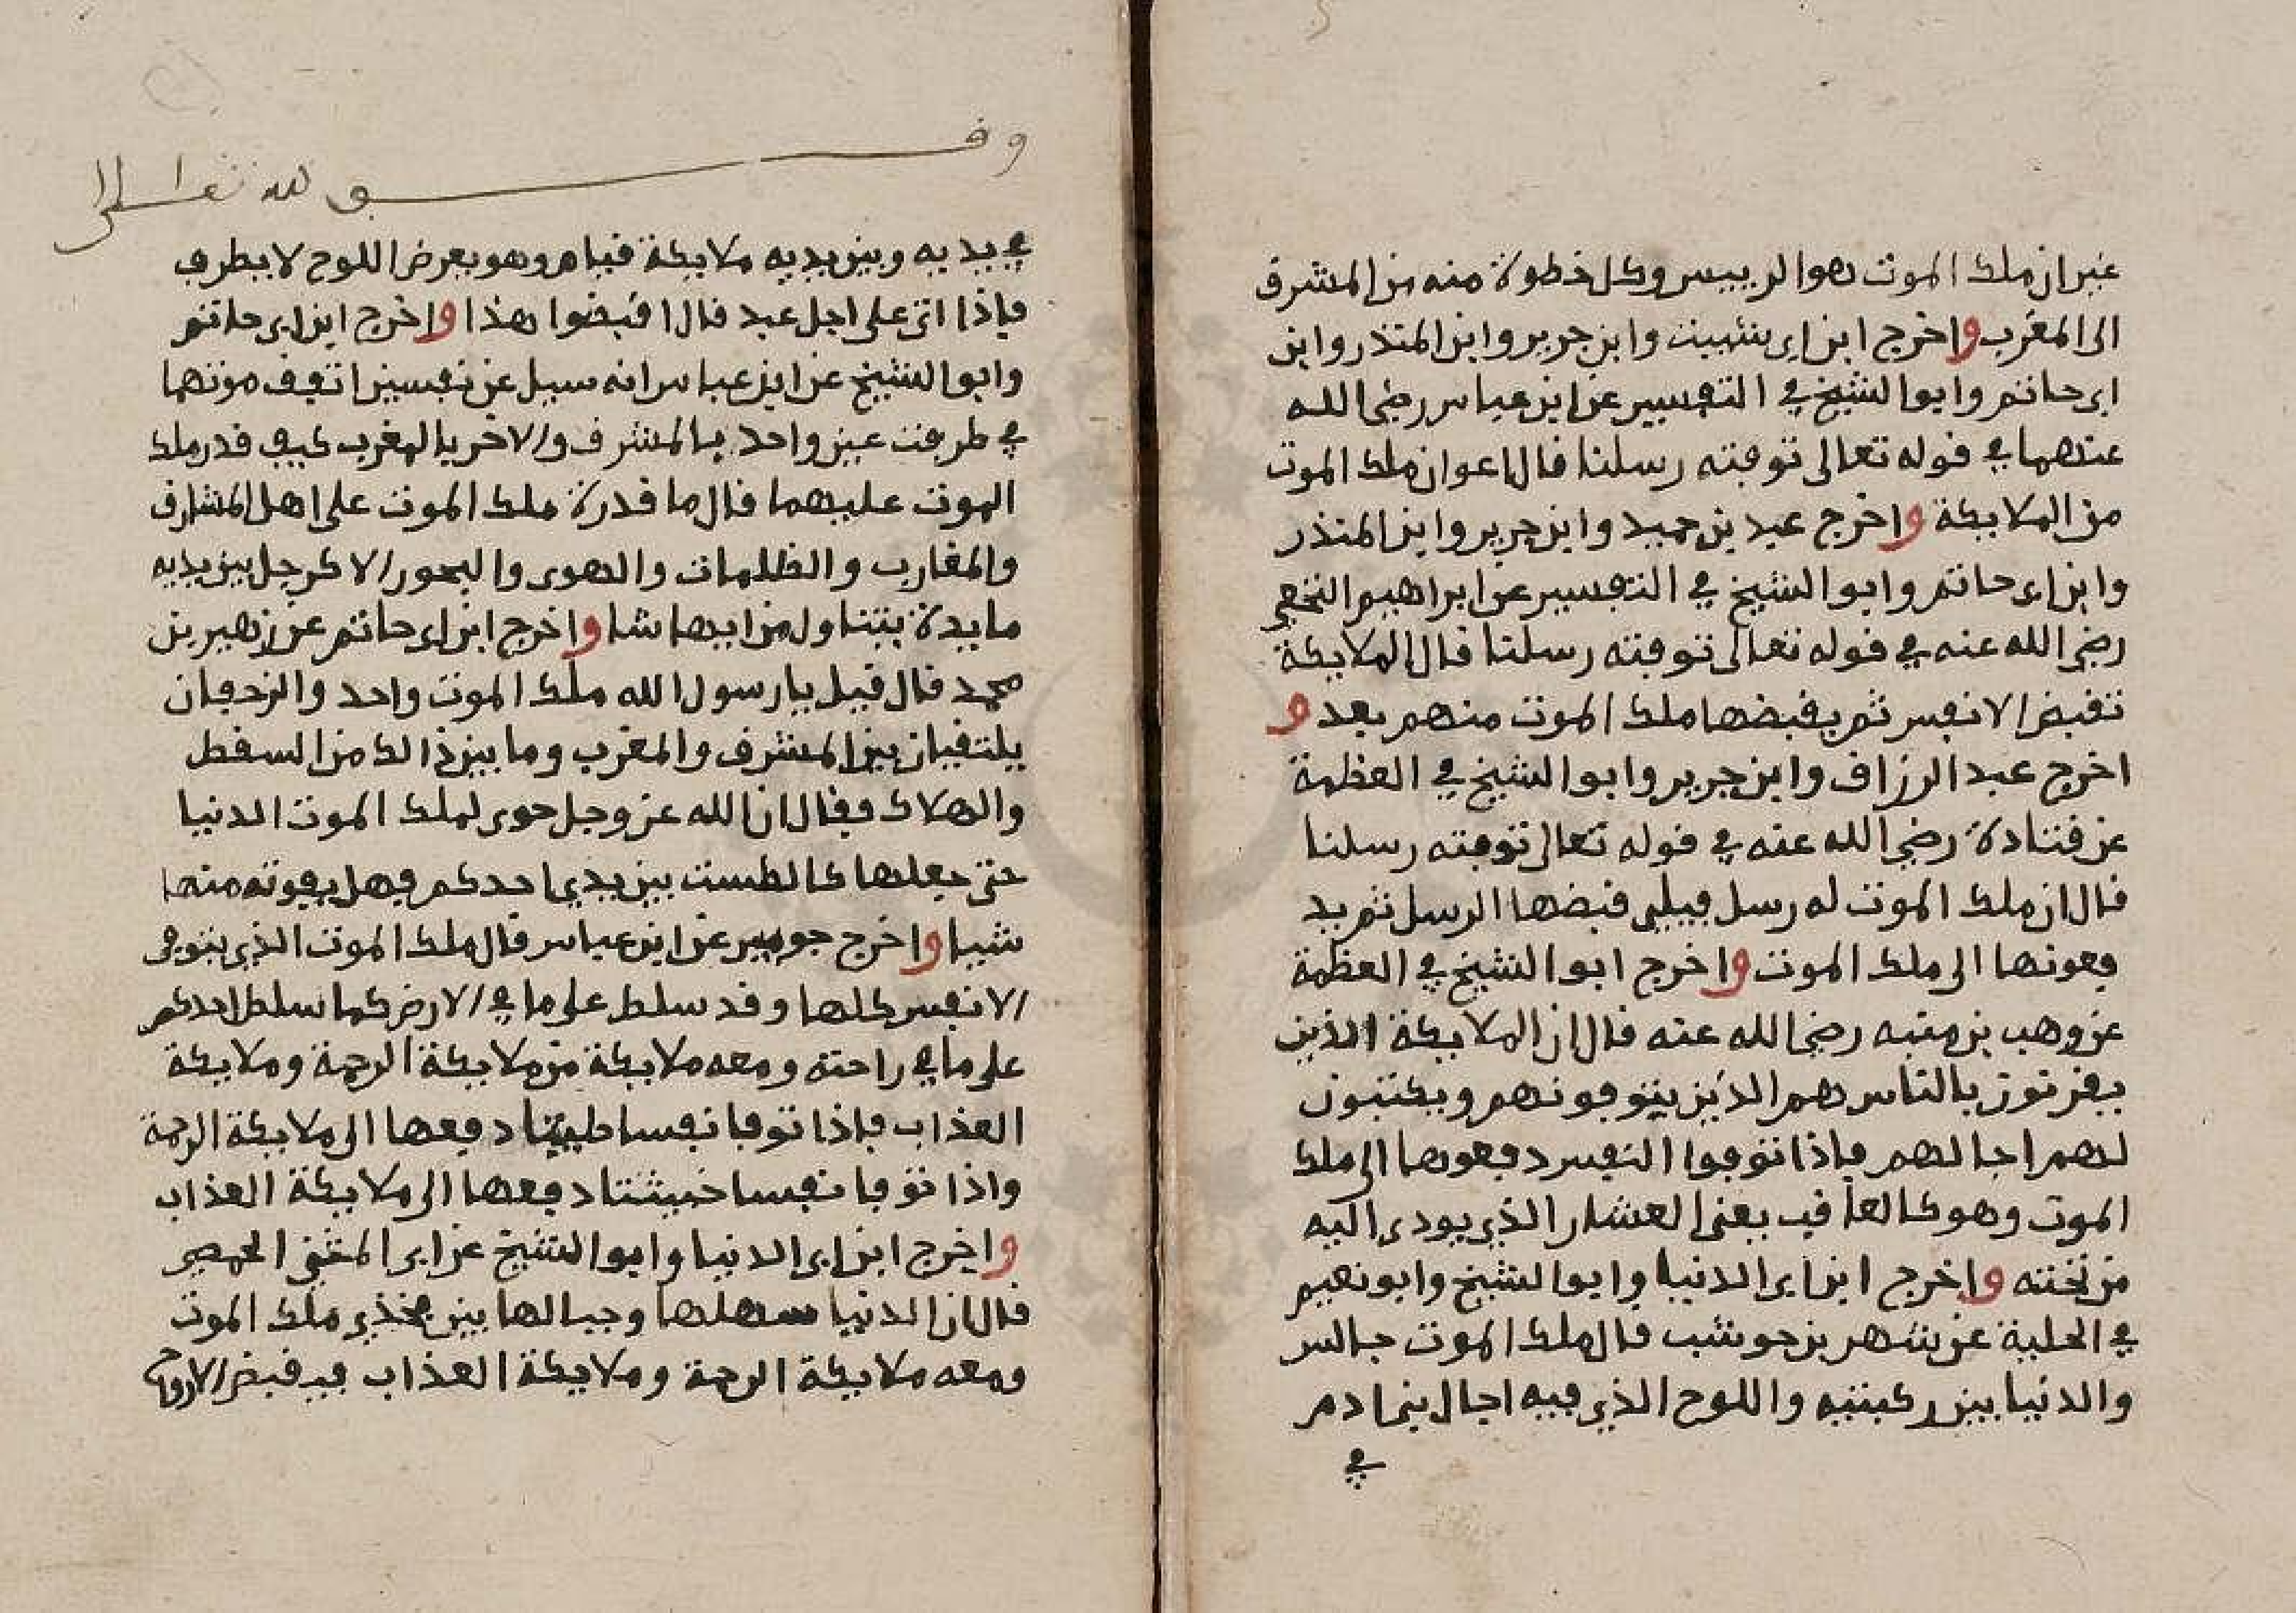 غير ان ملك الموت هوا الرييس وكل خطوة منه من المشرق
الى المغرب واخرج ابن ابى شيبت وابن جرير وابن المنذر وابن
ابى حاتم وابوا الشيخ في التفسير عن ابن عباس رضى الله
عنهما في قوله تعالى توفته رسلنا قال اعوان ملك الموت
من الملايكة واخرج عبد بن حميد وابن جرير وابن المنذر
وابن ابى حاتم وابوا الشيخ في التفسير عن ابراهيم النخعي
رضى الله عنه في قوله تعالى توفته رسلنا قال الملايكة
تقبض الانفس ثم يقبضها ملك الموت منهم بعد و
اخرج عبد الرزاق وابن جرير وابوا الشيخ في العظمة
عن قتادة رضى الله عنه في قوله تعالى توفته رسلنا
قال ان ملك الموت له رسل فيلى قبضها الرسل ثم يد
فعونها الى ملك الموت واخرج ابوا الشيخ في العظمة
عن وهب بن منبه رضى الله عنه قال ان الملايكة الذين
يقرنون بالناس هم الذين يتوفونهم ويكتبون
لهم اجالهم فاذا توفوا النفس دفعوها الى ملك
الموت وهو كالعاقب يعنى العشار الذي يودى اليه
من تحته واخرج ابن ابى الدنيا وابوا الشيخ وابو نعيم
في الحلية عن شهر بن حوشب قال ملك الموت جالس
والدنيا بين ركبتيه واللوح الذي فيه اجال بنى ادم
في
وقف لله تعالى
في يديه وبين يديه ملايكة قيام وهو يعرض اللوح لا يطرف
فاذا اتى على اجل عبد قال اقبضوا هذا واخرج ابن ابى حاتم
وابوا الشيخ عن ابن عباس انه سيل عن نفسين اتفق موتهما
في طرفت عين واحد بالمشرق والاخر بالمغرب كيف قدر ملك
الموت عليهما قال ما قدرة ملك الموت على اهل المشارق
والمغارب والظلمات والهوى والبحور الا كرجل بين يديه
مايدة يتناول من ايها شا واخرج ابن ابى حاتم عن زهير بن
محمد قال قيل يا رسول الله ملك الموت واحد والزحفان
يلتقيان بين المشرق والمغرب وما بين ذالك من السقط
والهلاك فقال ان الله عز وجل حوى لملك الموت الدنيا
حتى جعلها كالطست بين يدي احدكم فهل يفوته منها
شيا واخرج جويبر عن ابن عباس قال ملك الموت الذي يتوفى
الانفس كلها وقد سلط على ما في الارض كما سلط احدكم
على ما في راحته ومعه ملايكة من ملايكة الرحمة وملايكة
العذاب فاذا توفا نفسا طيبتا دفعها الى ملايكة الرحمة
واذا توفا نفسا خبيثتا دفعها الى ملايكة العذاب
واخرج ابن ابى الدنيا وابوا الشيخ عن ابى المثنى الحمصى
قال ان الدنيا سهلها وجبالها بين فخذى ملك الموت
ومعه ملايكة الرحمة وملايكة العذاب فيقبض الارواح